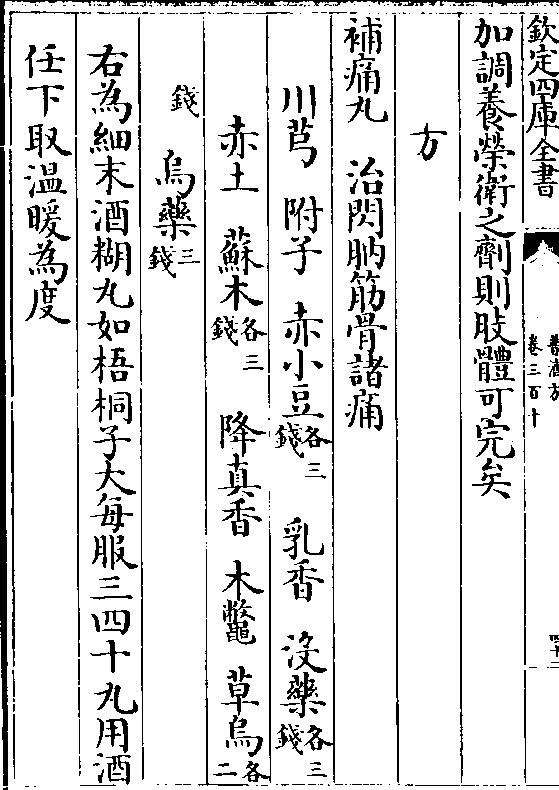 欽定四庫全書
普濟方
卷三百十
加調養榮衛之劑則肢體可完矣
方
補痛丸 治閃肭筋骨諸痛
川芎 附子 赤小豆各三錢 乳香 沒藥各三錢
赤土 蘇木各三錢 降真香 木鼈 草烏各二
錢 烏藥三錢
右為細末酒糊丸如梧桐子大每服三四十丸用酒
任下取溫暖為度